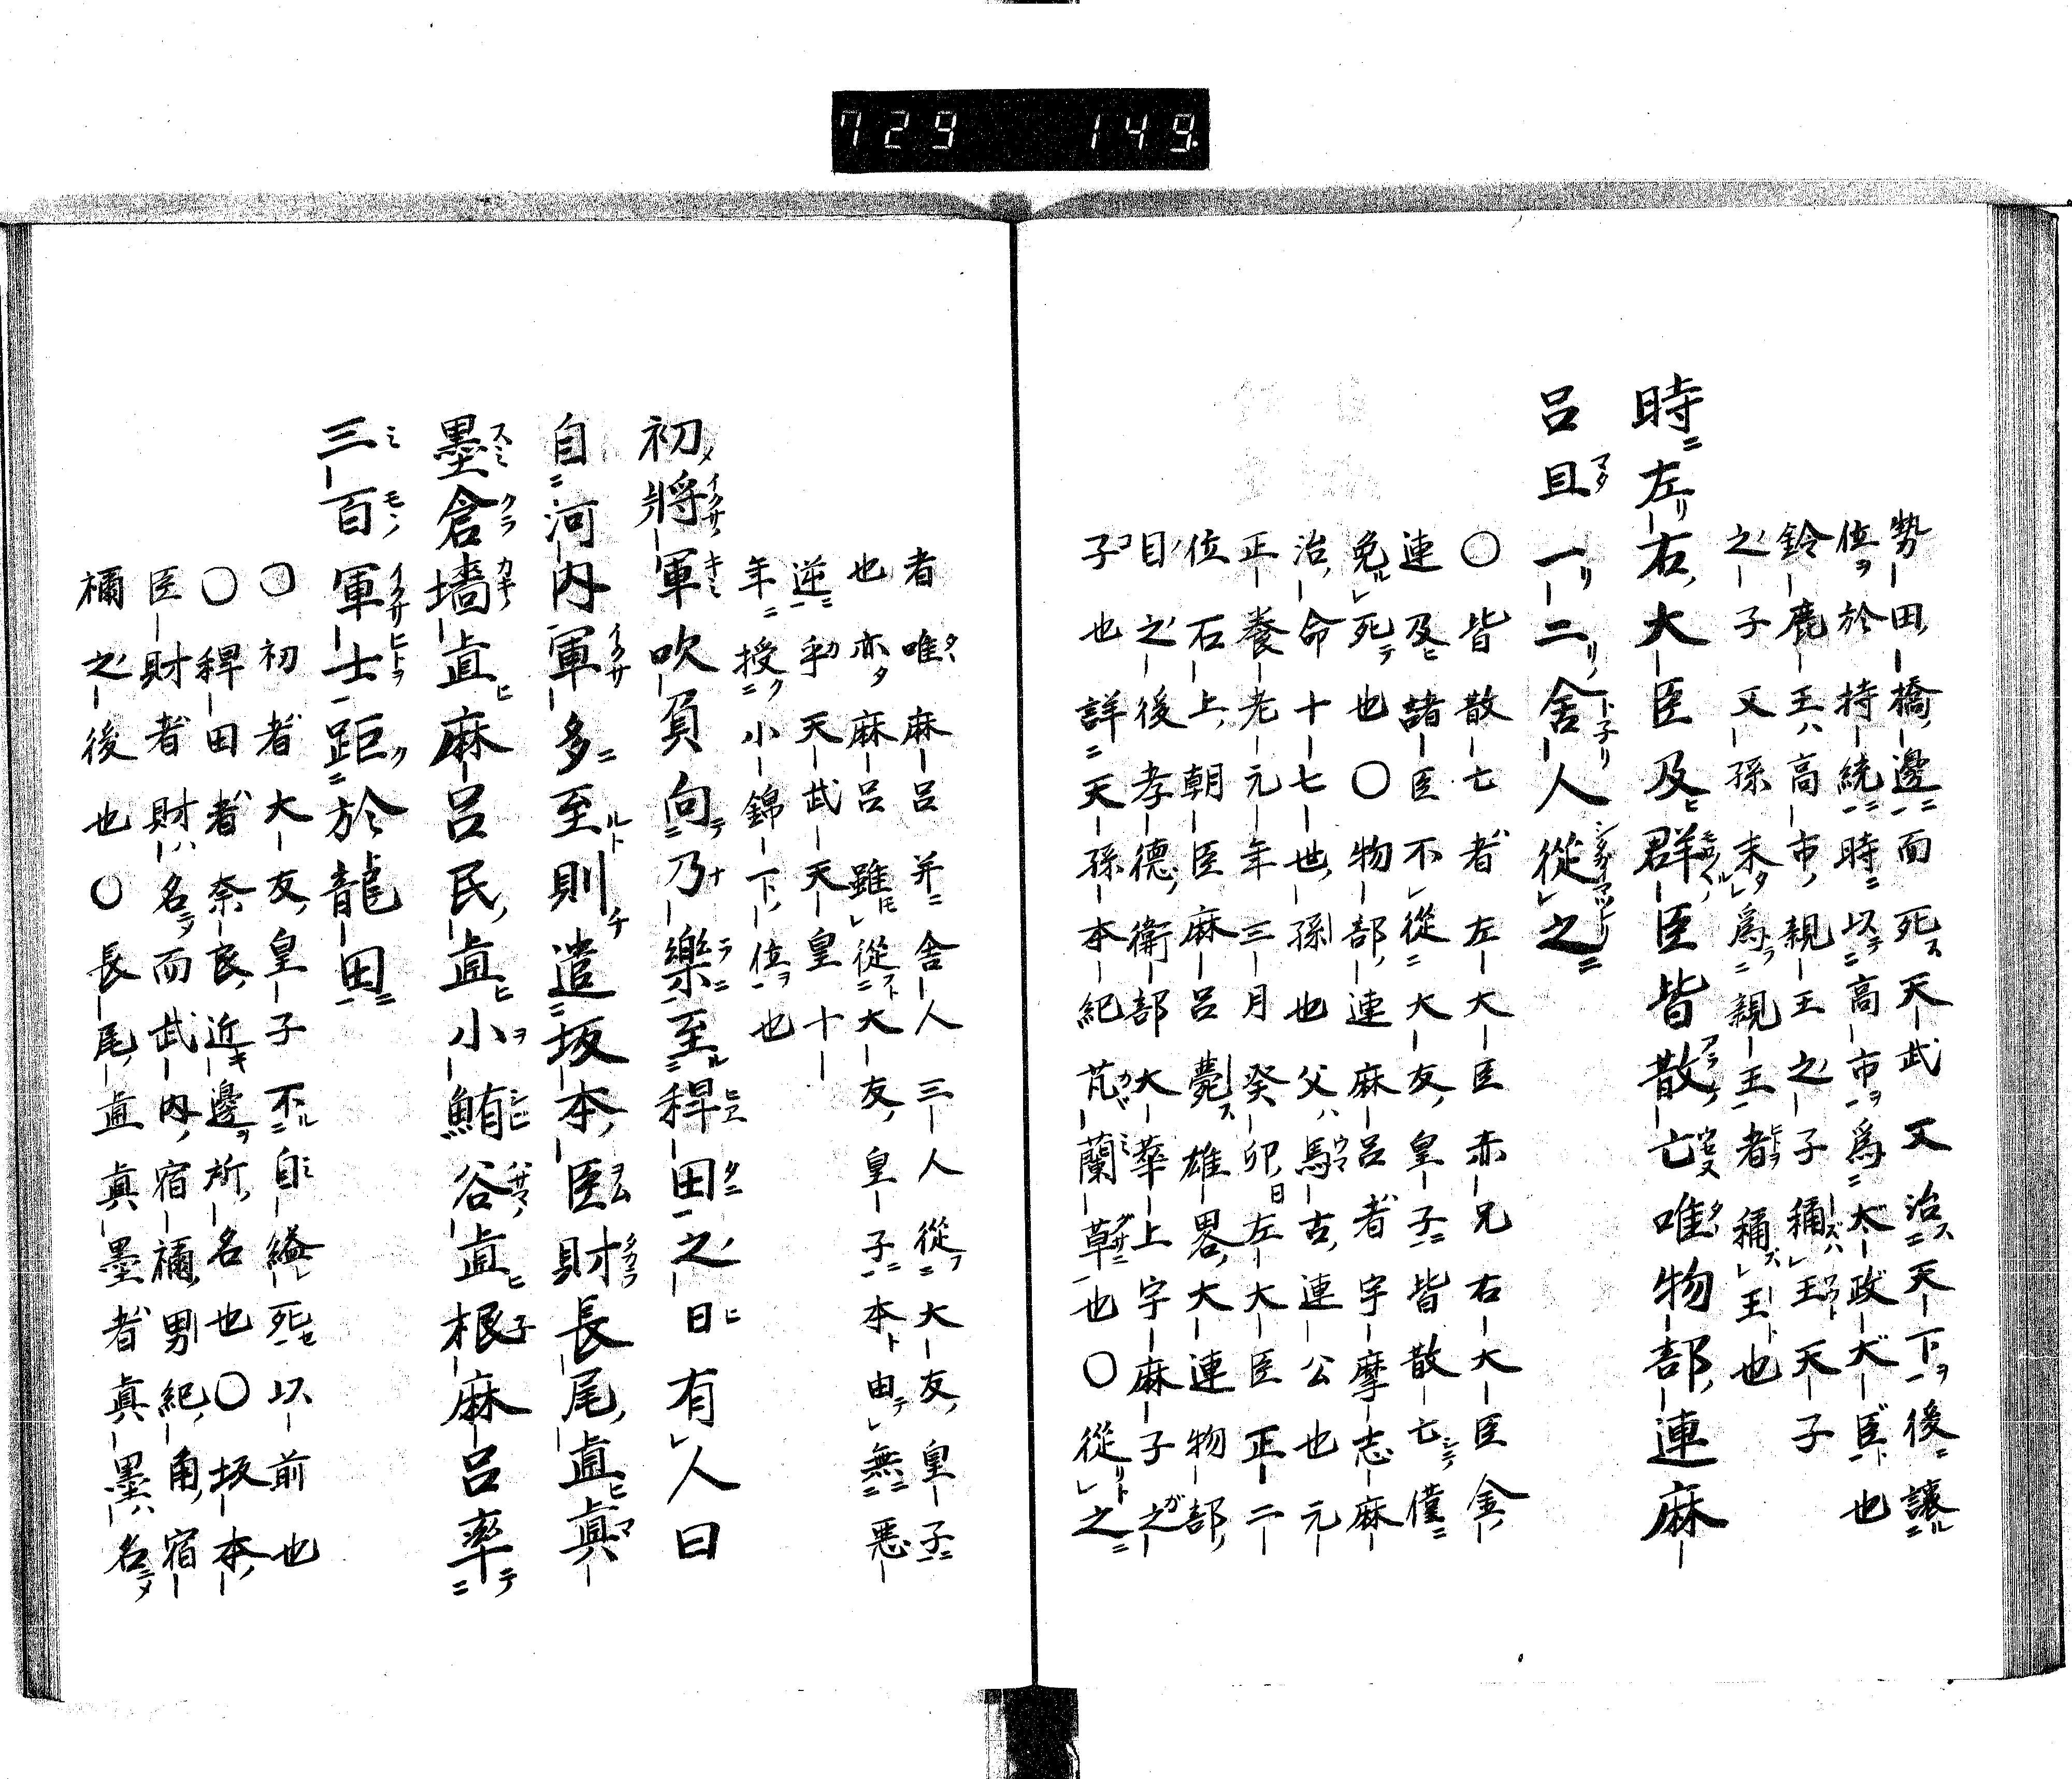 729 149.
勢田橋邊面死天武又治天下後讓
位於持統時以高市爲太政大臣也
鈴鹿王高市親王之子稱王天子
之子又孫未爲親王者稱王也
時左右大臣及群臣皆散亡唯物部連麻
呂且一二舍人從之
〇皆散亡者左大臣赤兄右大臣金
連及諸臣不從大友皇子皆散亡僅
免死也〇物部連麻呂者宇摩志麻
治命十七世孫也父馬古連公也元
正養老元年三月癸卯日左大臣正二
位石上朝臣麻呂薨雄畧大連物部
目之後孝德衛部大華上宇麻子之
子也詳天孫本紀芃蘭草也〇從之
者唯麻呂并舍人三人從大友皇子
也亦麻呂雖從大友皇子本由無惡
逆乎天武天皇十
年授小錦下位也
初將軍吹負向乃樂至稗田之日有人曰
自河内軍多至則遣坂本臣財長尾直眞
墨倉墻直麻呂民直小鮪谷直根麻呂率
三百軍士距於龍田
〇初者大友皇子不自縊死以前也
〇稗田者奈良近邊所名也〇坂本
臣財者財名而武内宿禰男紀角宿
禰之後也〇長尾直眞墨者眞墨名